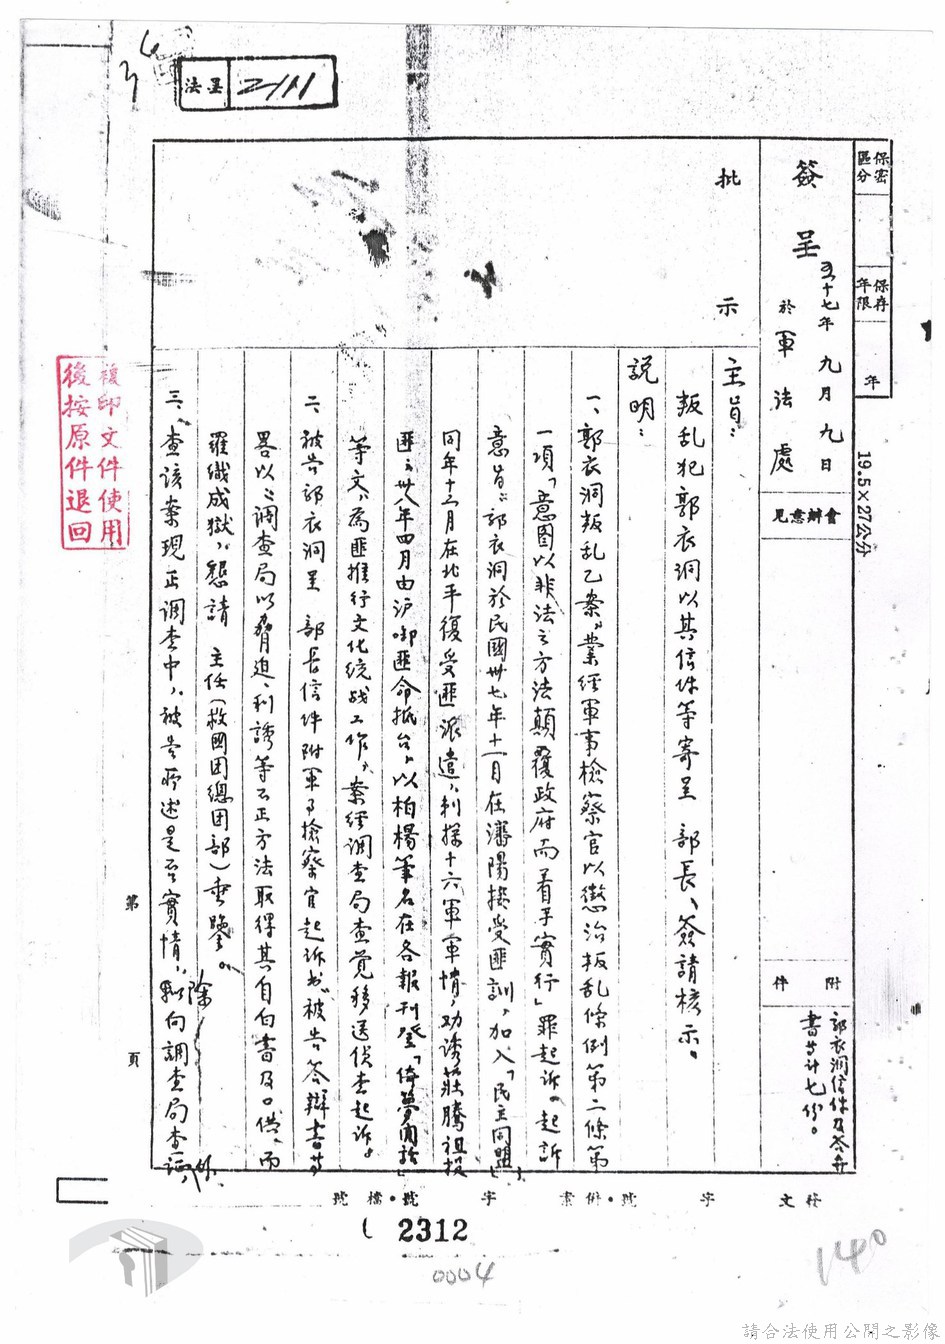 法呈 2111
保密區分
保存年限
年
19.5×27公分
簽呈
五十七年九月九日
於軍法處
會辦意見
附件
郭衣洞信件及答弁書等計七份。
批示
主旨：
叛乱犯郭衣洞以其信件等寄呈 部長、簽請核示。
説明：
一、郭衣洞叛乱乙案，業經軍事檢察官以懲治叛乱條例第二條第
一項「意圖以非法之方法顛覆政府而着手實行」罪起訴。起訴
意旨：郭衣洞於民國卅七年十一月在瀋陽接受匪訓，加入「民主同盟」，
同年十二月在北平復受匪派遣，刺探十六軍軍情，劝诱莊騰祖投
匪；卅八年四月由沪啣匪命抵台，以柏楊筆名在各報刊登「倚夢閒話」
等文，為匪推行文化統战工作，案經調查局查覺移送侦查起訴。
二、被告郭衣洞呈 部長信件附軍事檢察官起訴书、被告答辯書等
畧以：調查局以脅迫、利誘等不正方法取得其自白書及口供，而
羅織成獄，懇請 主任(救國団總団部)垂鑒。
三、查該案現正調查中，被告所述是否實情，除向調查局查証外
第 頁
收文 字 號・附案 字 號・檔號
2312
0004
140
複印文件使用
後按原件退回
請合法使用公開之影像